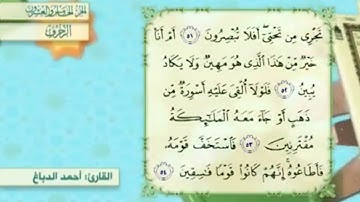 الجزء الخامس والعشرون
الزخرف
تَجْرِى مِن تَحْتِىٓ أَفَلَا تُبْصِرُونَ ٥١ أَمْ أَنَا۠
خَيْرٌ مِّنْ هَٰذَا ٱلَّذِى هُوَ مَهِينٌ وَلَا يَكَادُ
يُبِينُ ٥٢ فَلَوْلَآ أُلْقِىَ عَلَيْهِ أَسْوِرَةٌ مِّن
ذَهَبٍ أَوْ جَآءَ مَعَهُ ٱلْمَلَٰٓئِكَةُ
مُقْتَرِنِينَ ٥٣ فَٱسْتَخَفَّ قَوْمَهُۥ
فَأَطَاعُوهُ ۚ إِنَّهُمْ كَانُوا۟ قَوْمًا فَٰسِقِينَ ٥٤
القارئ: أحمد الدباغ